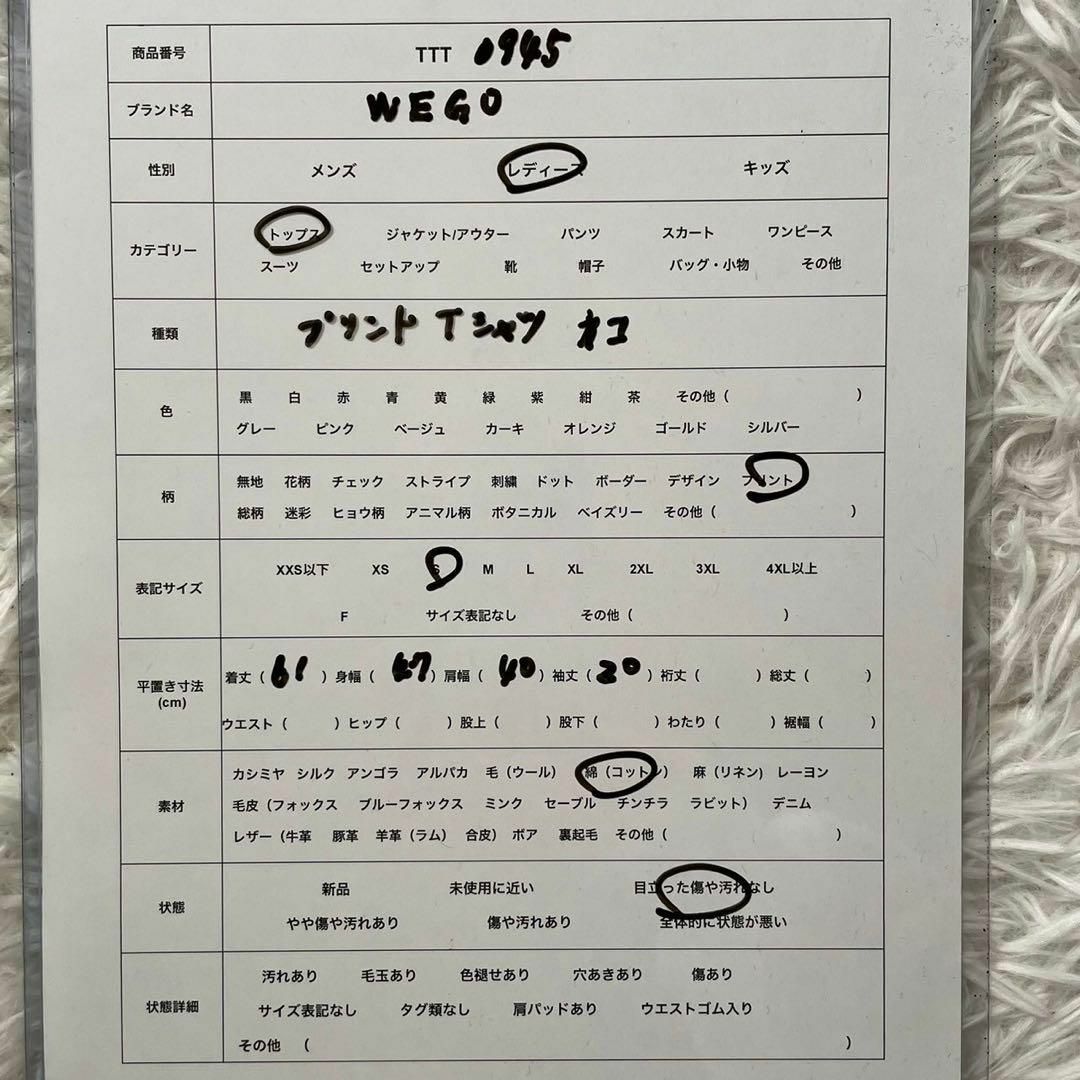 商品番号 TTT 0945
ブランド名 WEGO
性別 メンズ レディース キッズ
カテゴリー トップス ジャケット/アウター パンツ スカート ワンピース
スーツ セットアップ 靴 帽子 バッグ・小物 その他
種類 プリント Tシャツ ネコ
色 黒 白 赤 青 黄 緑 紫 紺 茶 その他（ ）
グレー ピンク ベージュ カーキ オレンジ ゴールド シルバー
柄 無地 花柄 チェック ストライプ 刺繍 ドット ボーダー デザイン プリント
総柄 迷彩 ヒョウ柄 アニマル柄 ボタニカル ペイズリー その他（ ）
表記サイズ XXS以下 XS S M L XL 2XL 3XL 4XL以上
F サイズ表記なし その他（ ）
平置き寸法 (cm) 着丈（ 61 ）身幅（ 47 ）肩幅（ 40 ）袖丈（ 20 ）裄丈（ ）総丈（ ）
ウエスト（ ）ヒップ（ ）股上（ ）股下（ ）わたり（ ）裾幅（ ）
素材 カシミヤ シルク アンゴラ アルパカ 毛（ウール） 綿（コットン） 麻（リネン） レーヨン
毛皮（フォックス ブルーフォックス ミンク セーブル チンチラ ラビット） デニム
レザー（牛革 豚革 羊革（ラム） 合皮） ボア 裏起毛 その他（ ）
状態 新品 未使用に近い 目立った傷や汚れなし
やや傷や汚れあり 傷や汚れあり 全体的に状態が悪い
状態詳細 汚れあり 毛玉あり 色褪せあり 穴あきあり 傷あり
サイズ表記なし タグ類なし 肩パッドあり ウエストゴム入り
その他 （ ）